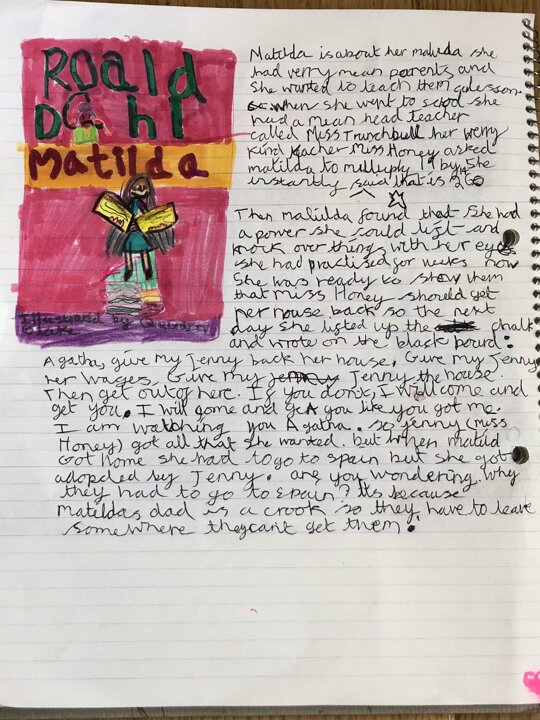 Roald
Dahl
Matilda
Illustrated by Quentin
Blake
Matilda is about her matilda she
had verry mean perents and
she wanted to teach them a lesson.
when she went to scool she
had a mean head teacher
called Miss Trunchbull her verry
kind teacher Miss Honey asked
matilda to multiply 19 by 14 she
instantly said that is 266
Then matilda found that she had
a power she could lift and
knock over things with her eyes
she had practised for weeks now
She was ready to show them
that Miss Honey should get
her house back so the next
day she lifted up the chalk
and wrote on the black bourd:
Agatha, give my Jenny back her house, Give my Jenny
her wages, Give my Jenny the house.
Then get out of here. If you don't, I will come and
get you. I will come and get you like you got me.
I am watching you Agatha. so jenny (miss
Honey) got all that she wanted. but when matild
Got home she had to go to spain but she got
adopded by Jenny. are you wondering why
they had to go to spain? its because
matildas dad is a crook so they have to leave
somewhere they can't get them!